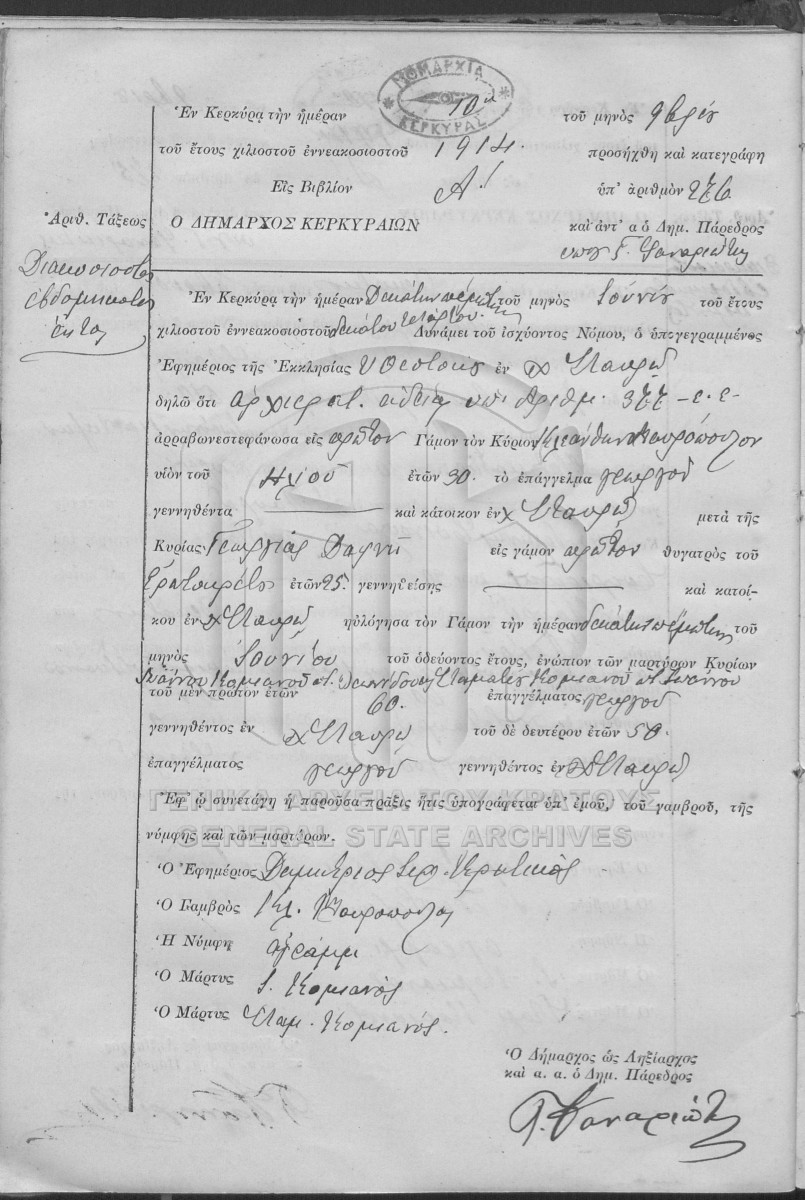 ΝΟΜΑΡΧΙΑ ΚΕΡΚΥΡΑΣ
Ἐν Κερκύρᾳ τὴν ἡμέραν 10ῃ τοῦ μηνὸς 9βρίου
τοῦ ἔτους χιλιοστοῦ ἐννεακοσιοστοῦ 1914. προσήχθη καὶ κατεγράφη
Εἰς Βιβλίον Α! ὑπ' ἀριθμὸν 276
Ἀριθ. Τάξεως
Ο ΔΗΜΑΡΧΟΣ ΚΕΡΚΥΡΑΙΩΝ καὶ ἀντ' α ὁ Δημ. Πάρεδρος
Γ. Φαναριώτη
Διακοσιοστὸς
ἑβδομηκοστὸς
ἕκτος
Ἐν Κερκύρᾳ τὴν ἡμέραν Δεκάτην πέμπτην τοῦ μηνὸς Ἰουνίου τοῦ ἔτους
χιλιοστοῦ ἐννεακοσιοστοῦ δεκάτου τετάρτου. Δυνάμει τοῦ ἰσχύοντος Νόμου, ὁ ὑπογεγραμμένος
Ἐφημέριος τῆς Ἐκκλησίας ἐν χ Σταυρῷ
δηλῶ ὅτι ἀρχιερατ. ἀδείᾳ ὑπ' Ἀριθμ. 377 - ε. ε.
ἀρραβωνεστεφάνωσα εἰς πρῶτον Γάμον τὸν Κύριον Κλεάνθην Μαυρόπουλον
υἱὸν τοῦ Ἡλιοῦ ἐτῶν 30. τὸ ἐπάγγελμα γεωργοῦ
γεννηθέντα καὶ κάτοικον ἐν χ Σταυρῷ μετὰ τῆς
Κυρίας Γεωργίας Δαφνῆ εἰς γάμον πρῶτον θυγατρὸς τοῦ
ἐτῶν 25. γεννηθείσης καὶ κατοί-
κου ἐν χ Σταυρῷ ηὐλόγησα τὸν Γάμον τὴν ἡμέραν δεκάτην πέμπτην τοῦ
μηνὸς Ἰουνίου τοῦ ὁδεύοντος ἔτους, ἐνώπιον τῶν μαρτύρων Κυρίων
Ἰωάννου Κομιανοῦ Σταματίου Κομιανοῦ π. Ἰωάννου
τοῦ μὲν πρώτου ἐτῶν 60. ἐπαγγέλματος γεωργοῦ
γεννηθέντος ἐν χ Σταυρῷ τοῦ δὲ δευτέρου ἐτῶν 50.
ἐπαγγέλματος γεωργοῦ γεννηθέντος ἐν χ Σταυρῷ
ΓΕΝΙΚΑ ΑΡΧΕΙΑ ΤΟΥ ΚΡΑΤΟΥΣ
Ἐφ' ᾧ συνετάγη ἡ παροῦσα πρᾶξις ἥτις ὑπογράφεται ὑπ' ἐμοῦ, τοῦ γαμβροῦ, τῆς
GENERAL STATE ARCHIVES
νύμφης καὶ τῶν μαρτύρων.
Ὁ Ἐφημέριος Δημήτριος Ἱερ. Κρητικὸς
Ὁ Γαμβρὸς Κλ. Μαυρόπουλος
Ἡ Νύμφη ἀγράμμ
Ὁ Μάρτυς Ι. Κομιανὸς
Ὁ Μάρτυς Σταμ. Κομιανός.
Ὁ Δήμαρχος ὡς Ληξίαρχος
καὶ α. α. ὁ Δημ. Πάρεδρος
Γ. Φαναριώτη